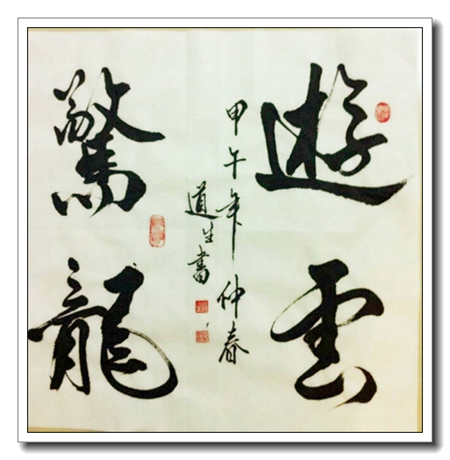 遊雲
驚龍
甲午年仲春
道生書